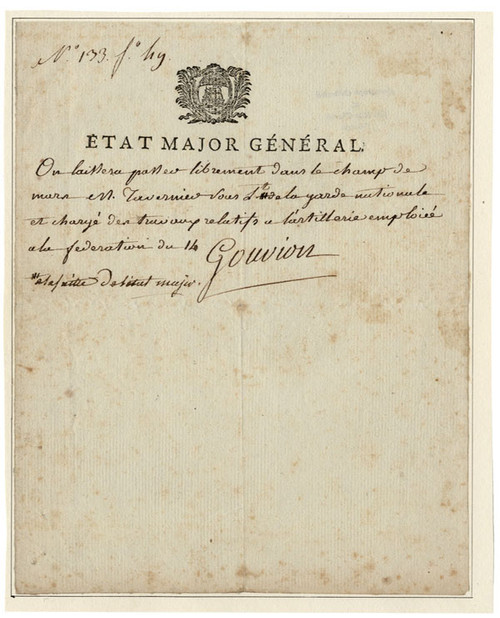 N.° 133. f.° 49.
ETAT MAJOR GÉNÉRAL.
On laissera passer librement dans le champ de
mars M. Tavernier sous Lt. de la garde nationale
et chargé des travaux relatifs a l'artillerie emploiée
a la federation du 14
Gouvion
de l'etat major.